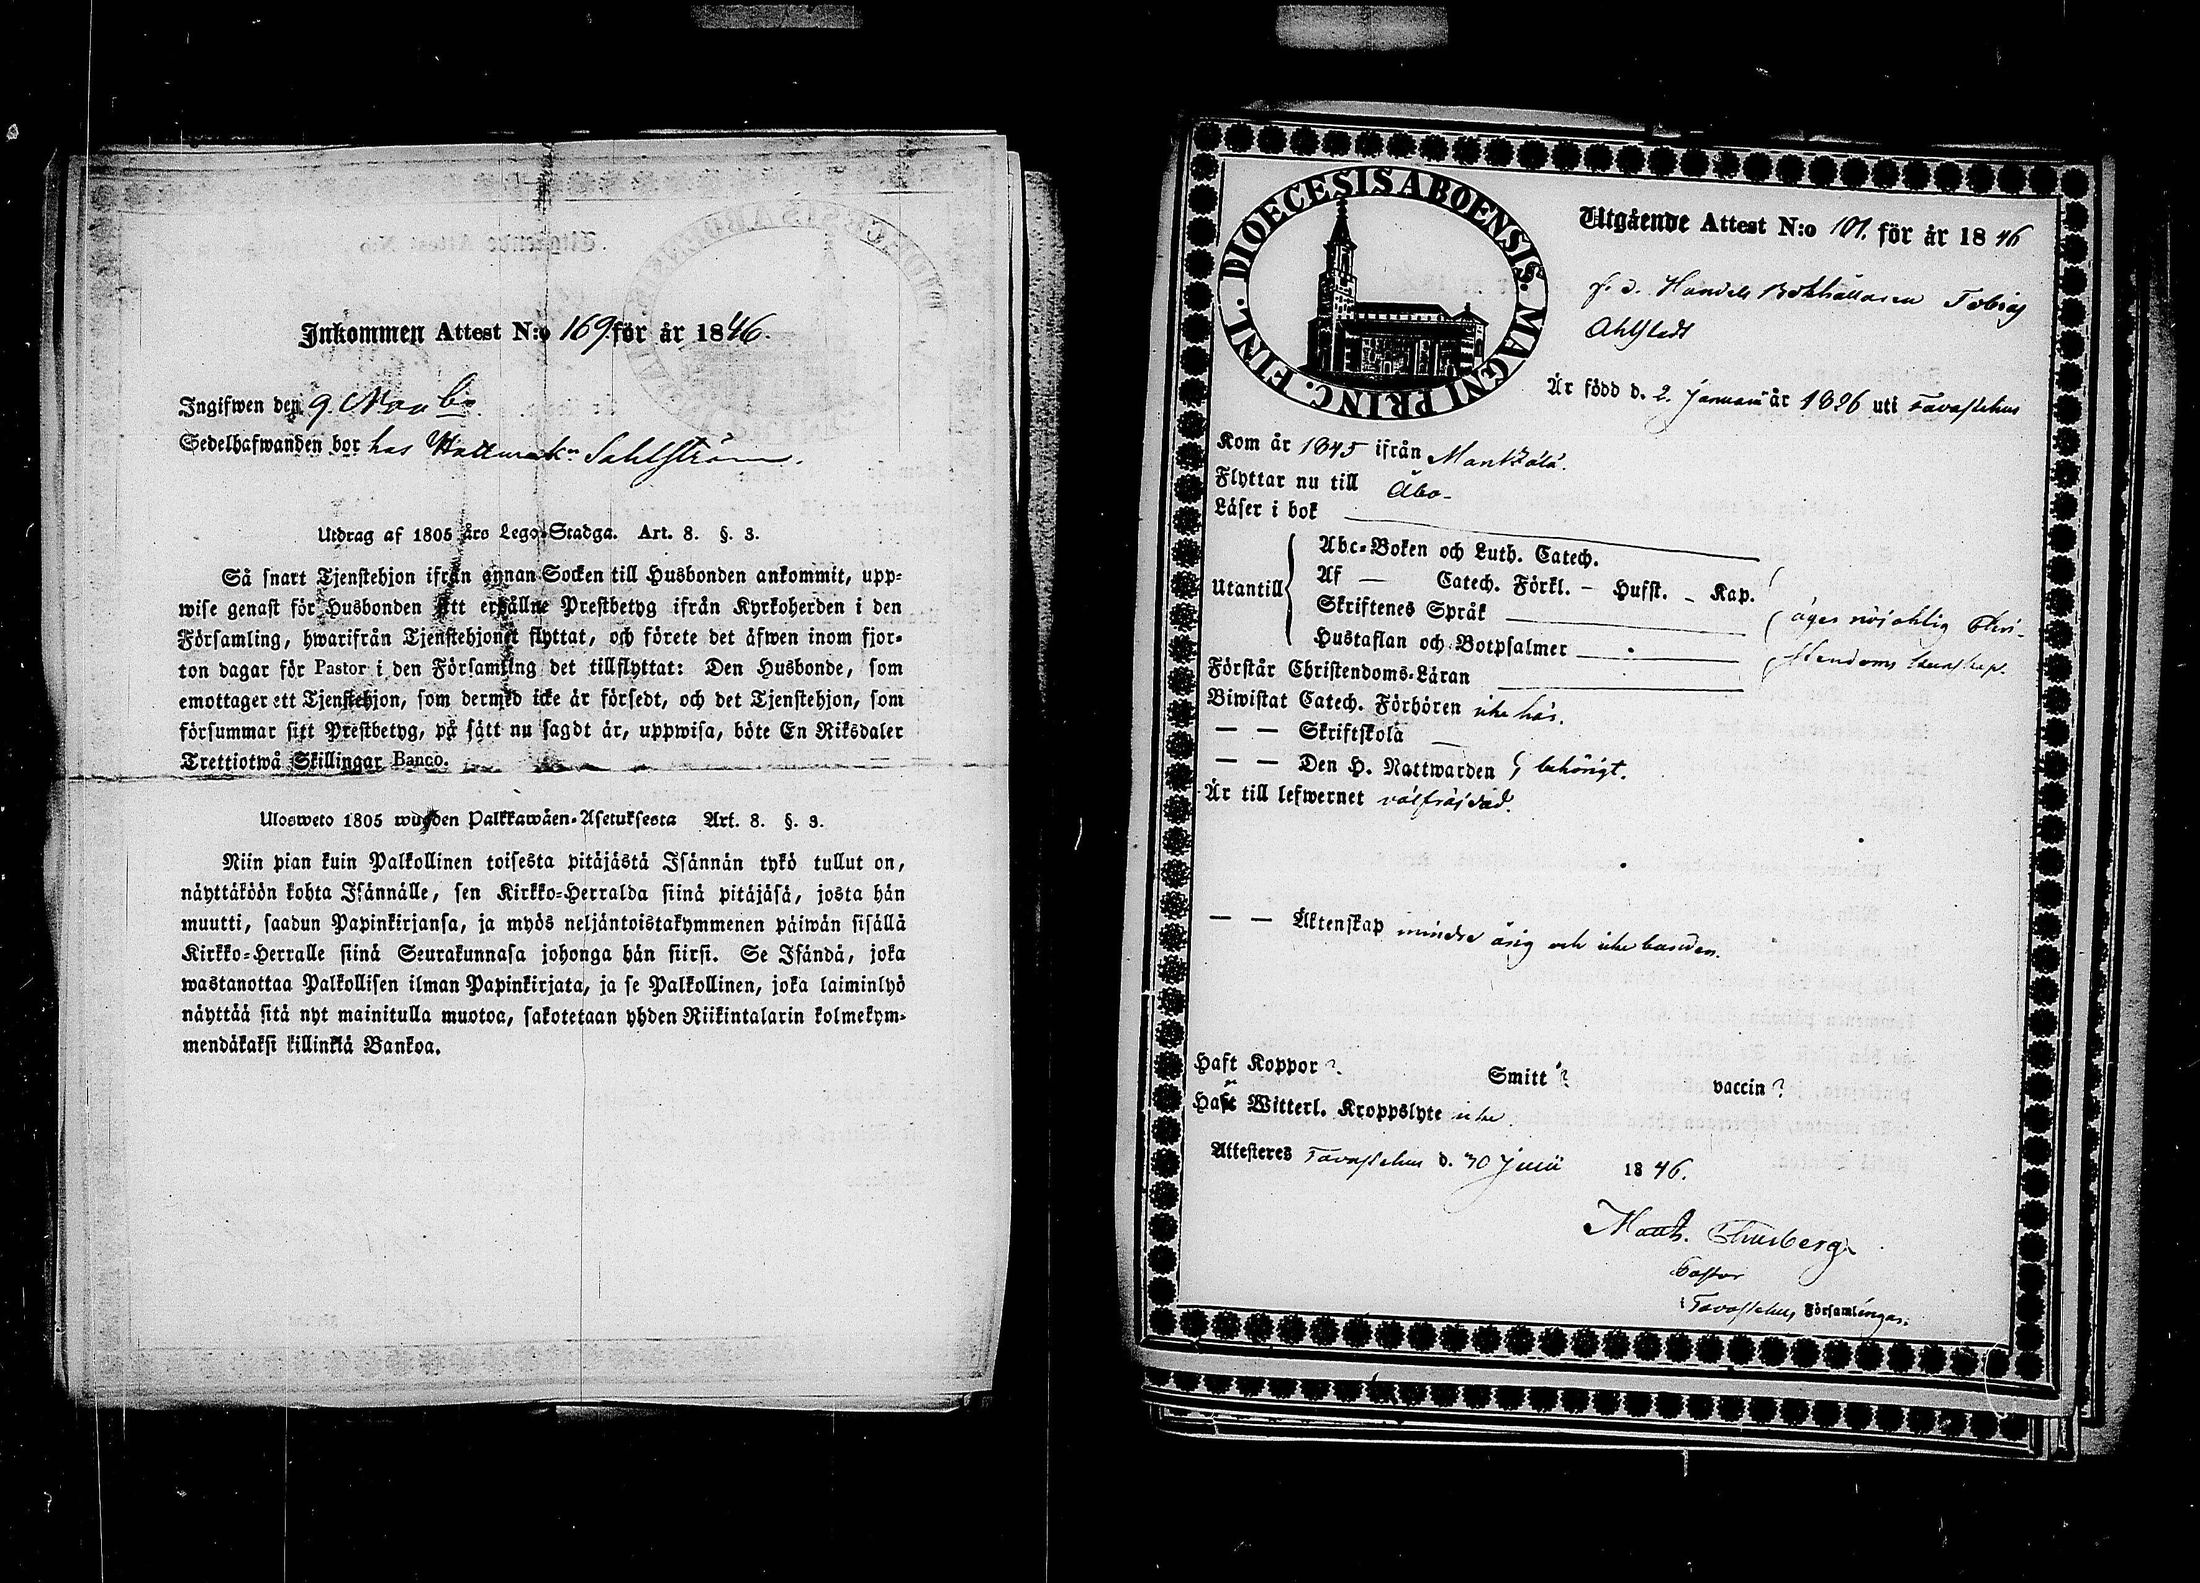 Inkommen Attest N:o 169 för år 1846.
Ingifwen den 9. Novbr
Sedelhafwanden bor hos Sahlström.
Utdrag af 1805 års Lego-Stadga. Art. 8. §. 3.
Så snart Tjenstehjon ifrån annan Socken till Husbonden ankommit, upp-
wise genast för Husbonden sitt erhållne Prestbetyg ifrån Kyrkoherden i den
Församling, hwarifrån Tjenstehjonet flyttat, och förete det äfwen inom fjor-
ton dagar för Pastor i den Församling det tillflyttat: Den Husbonde, som
emottager ett Tjenstehjon, som dermed icke är försedt, och det Tjenstehjon, som
försummar sitt Prestbetyg, på sätt nu sagdt är, uppwisa, böte En Riksdaler
Trettiotwå Skillingar Banco.
Ulosweto 1805 wuoden Palkkawäen-Asetuksesta Art. 8. §. 3.
Niin pian kuin Palkollinen toisesta pitäjästä Isännän tykö tullut on,
näyttäköön kohta Isännälle, sen Kirkko-Herralda siinä pitäjäsä, josta hän
muutti, saadun Papinkirjansa, ja myös neljäntoistakymmenen päiwän sisällä
Kirkko-Herralle siinä Seurakunnasa johonga hän siirsi. Se Isändä, joka
wastanottaa Palkollisen ilman Papinkirjata, ja se Palkollinen, joka laiminlyö
näyttää sitä nyt mainitulla muotoa, sakotetaan yhden Riikintalarin kolmekym-
mendäkaksi killinkiä Bankoa.
DIOECESIS ABOENSIS. MAGNI PRINC. FINL.
Utgående Attest N:o 101. för år 1846
f. d. Handels Bokhållaren Tobias
Ahlstedt
Är född d. 2. Januari år 1826 uti Tavastehus
Kom år 1845 ifrån Mantzälä.
Flyttar nu till Åbo.
Läser i bok
Utantill
Abc-Boken och Luth. Catech.
Af — Catech. Förkl. — Hufst. — Kap.
Skriftenes Språk
Hustaflan och Botpsalmer
äger nöjaktig Chri-
stendoms kunskap.
Förstår Christendoms-Läran
Biwistat Catech. Förhören icke här.
— — Skriftskola —
— — Den H. Nattwarden behörigt.
Är till lefwernet välfräjdad.
— — Äktenskap minder årig och icke bunden.
Haft Koppor ? Smitt ? vaccin ?
Haft Witterl. Kroppslyte icke
Attesteres Tavastehus d. 30 Julii 1846.
Math. Thusberg
Pastor
i Tavastehus Församlingar.